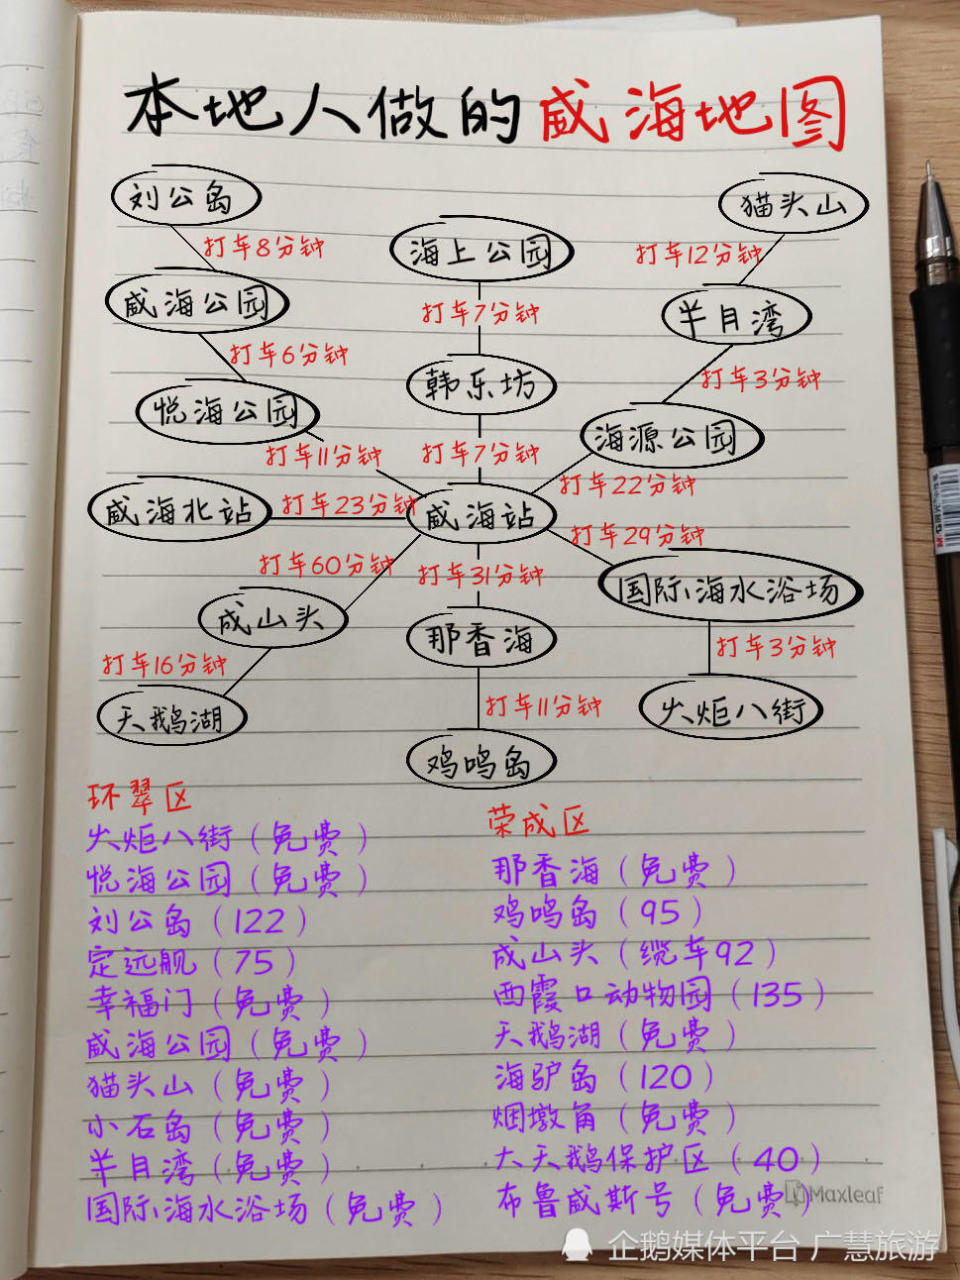 本地人做的威海地图
刘公岛
猫头山
打车8分钟
海上公园
打车12分钟
威海公园
打车7分钟
半月湾
打车6分钟
韩乐坊
打车3分钟
悦海公园
海源公园
打车11分钟
打车7分钟
打车22分钟
威海北站
打车23分钟
威海站
打车29分钟
打车60分钟
打车31分钟
国际海水浴场
成山头
那香海
打车3分钟
打车16分钟
打车11分钟
火炬八街
天鹅湖
鸡鸣岛
环翠区
火炬八街（免费）
悦海公园（免费）
刘公岛（122）
定远舰（75）
幸福门（免费）
威海公园（免费）
猫头山（免费）
小石岛（免费）
半月湾（免费）
国际海水浴场（免费）
荣成区
那香海（免费）
鸡鸣岛（95）
成山头（缆车92）
西霞口动物园（135）
天鹅湖（免费）
海驴岛（120）
烟墩角（免费）
大天鹅保护区（40）
布鲁威斯号（免费）
Maxleaf
企鹅媒体平台 广慧旅游
M&G